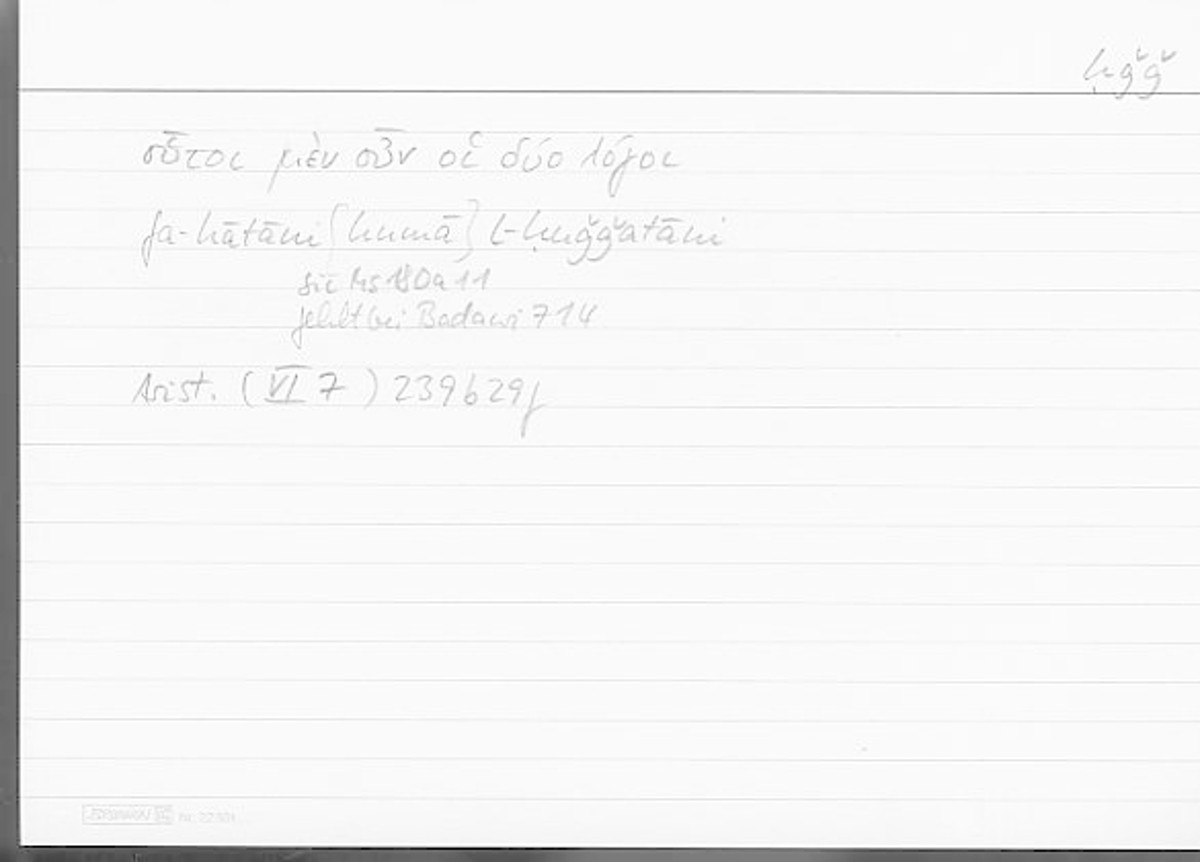 ḥǧǧ
οὗτοι μὲν οὖν οἱ δύο λόγοι
fa-hātāni [humā] l-ḥuǧǧatāni
sic Ms 180a 11
fehlt bei Badawi 714
Arist. (VI 7) 239b29f